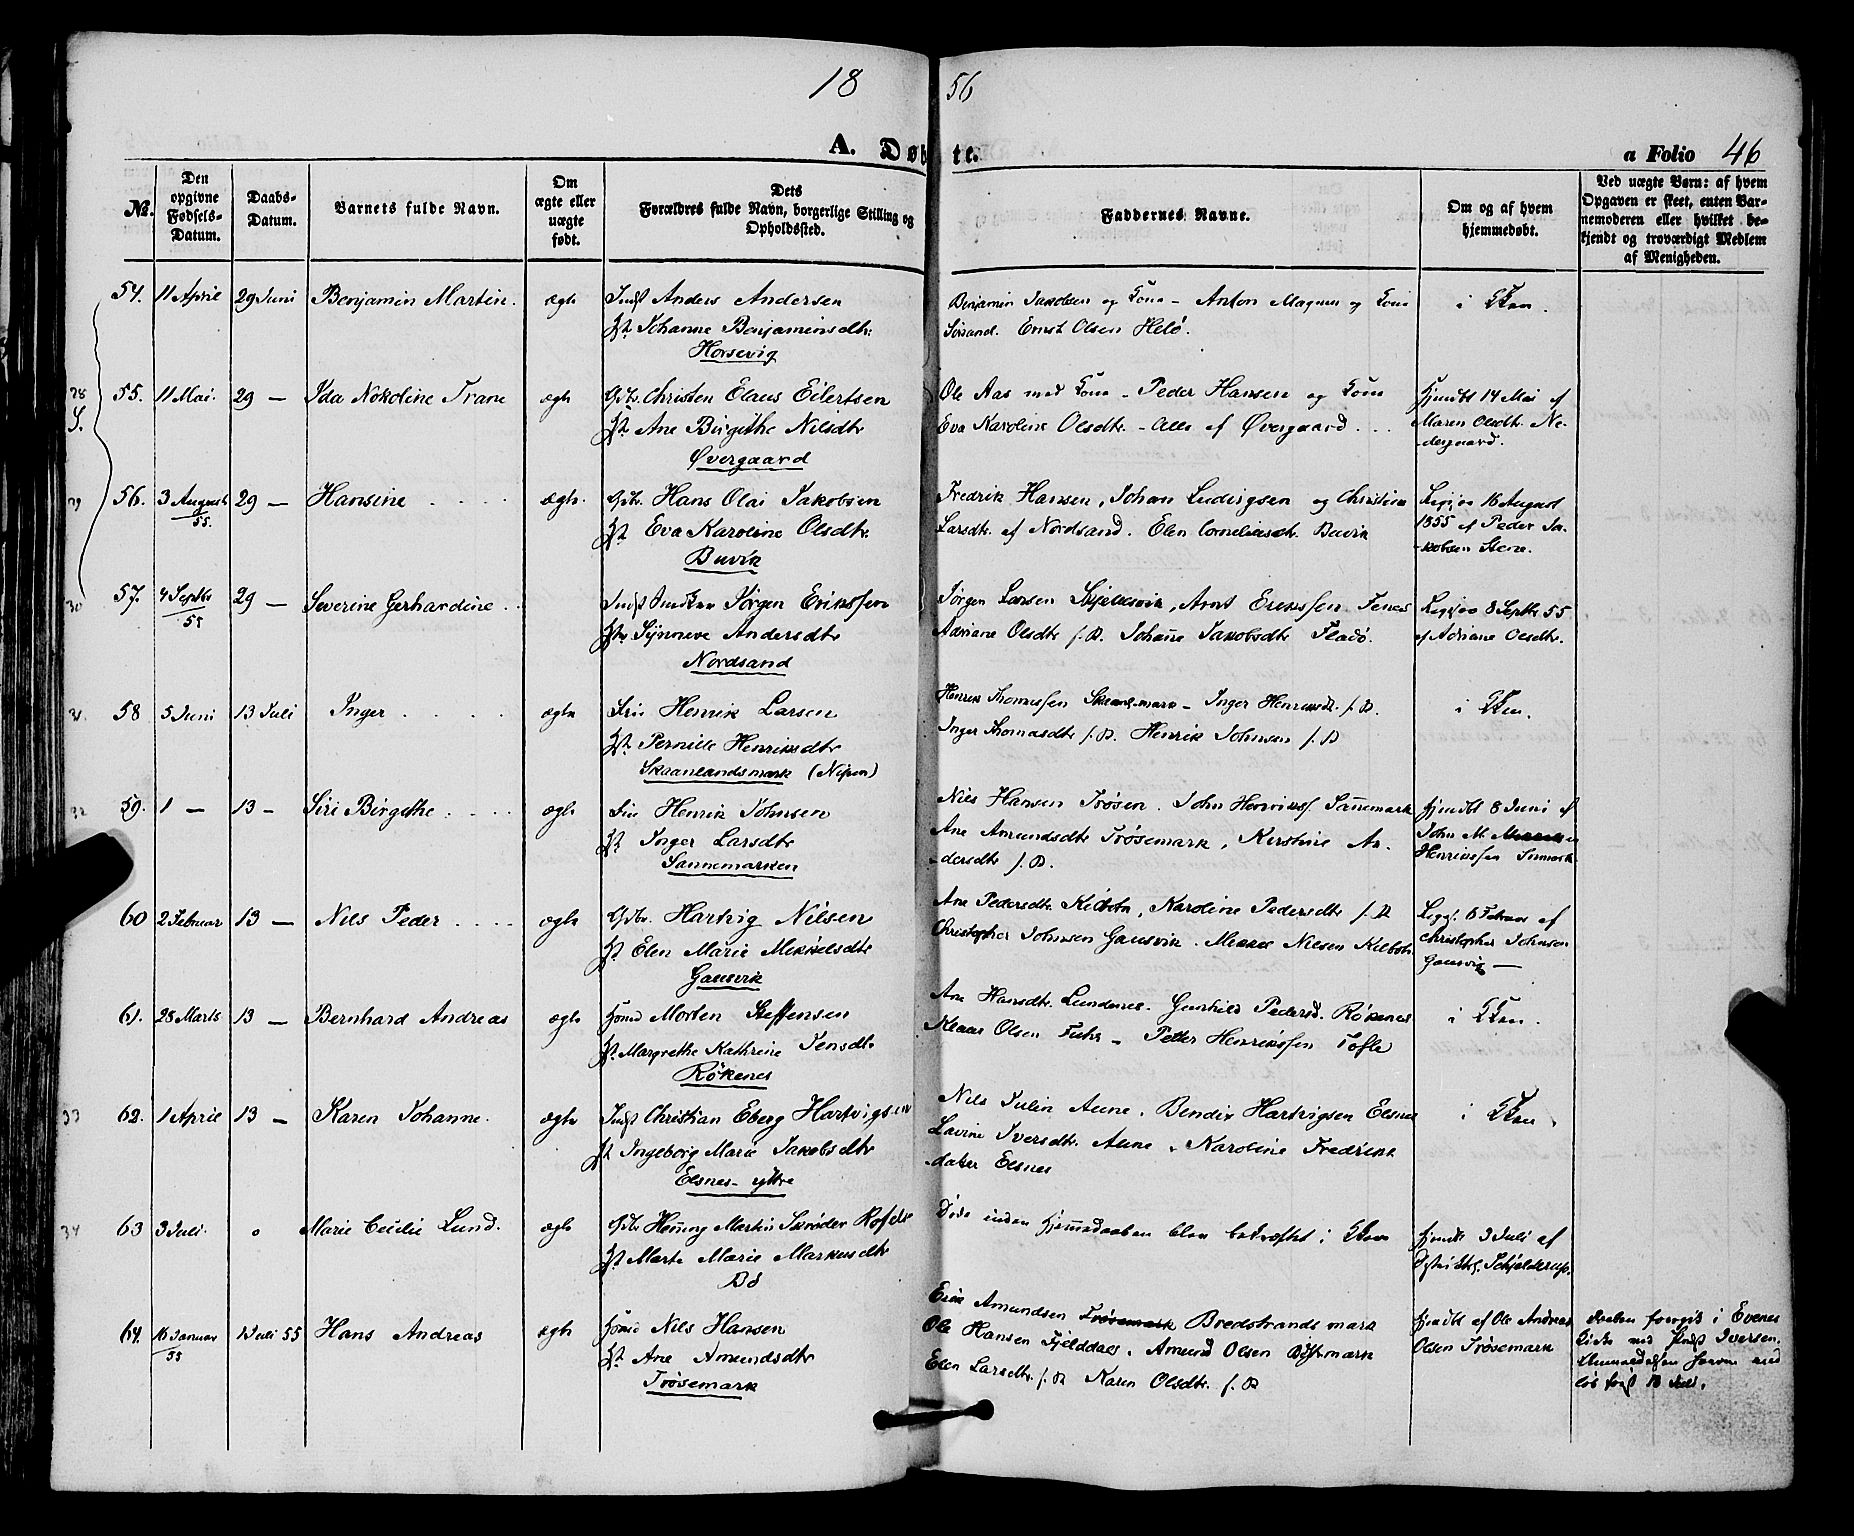 18 56
A. Døbte.
a Folio 46
No.
Den opgivne Fødsels-Datum.
Daabs-Datum.
Barnets fulde Navn.
Om ægte eller uægte født.
Dets Forældres fulde Navn, borgerlige Stilling og Opholdssted.
Faddernes Navne.
Om og af hvem hjemmedøbt.
Ved uægte Børn: af hvem Opgaven er skeet, enten Barnemoderen eller hvilket bekjendt og troværdigt Medlem af Menigheden.
54. 11 April 29 Juni Benjamin Martin. ægte Indst Anders Andersen
Hst Johanne Benjaminsdtr.
Horsevig
Benjamin Jakobsen og Kone - Anton Magnus og Kone
Sørsand. Ernst Olsen Helø.
i Kken.
28
S.
55. 11 Mai. 29 — Ida Nokoline Trane ægte Gdbr. Christen Elaus Eilertsen
Hst Ane Birgithe Nilsdtr
Øvergaard
Ole Aas med Kone - Peder Hansen og Kone
Eva Karoline Olsdtr. - Alle af Øvergaard . . .
Hjemdbt 14 Mai af
Maren Olsdtr. Ne-
dergaard.
29
56. 3 August 55. 29 — Hansine . . . . ægte. Gdbr. Hans Olai Jakobsen
Hst Eva Karoline Olsdtr.
Buvik
Fredrik Hansen, Johan Ludvigsen og Christine
Larsdtr. af Nordsand. Elen Corneliusdtr. Buvik
16 August
1855 af Peder Ja-
-kobsen Stene.
30
57. 4 Septbr 55 29 — Severine Gerhardine . . Indst Jørgen Erikssen
Hst Synneve Andersdtr
Nordsand
Jørgen Larsen Skjellesvik, Arnt Erikssen Fenes
Adriane Olsdtr f. B. Johane Jakobsdtr Fladø.
8 Septbr 55
af Adriane Olsdtr.
31.
58 5 Juni 13 Juli Inger . . . . ægte Fin Henrik Larsen
Hst Pernille Henriksdtr
Skaanlandsmark (Nipen)
Henrik Thomassen Skaanl.mark - Inger Henriksdt. f. B.
Inger Thomasdtr f. B. Henrik Johnsen f. B
i Kken.
32
59. 1 — 13 - Siri Birgithe . . . . ægte Fin Henrik Johnsen
Hst Inger Larsdtr
Sannemarken
Nils Hansen Trøsen. John Henrikss. Sannemark
Ane Amundsdtr Trøsemark, Kirstine An-
-dersdtr f. B.
Hjemdbt 8 Juni af
John M.
Henrikssen Snmark
60 2 Februar 13 — Nils Peder . . . . ægte Gdbr. Hartvig Nilsen
Hst Elen Marie Mikkelsdtr
Gausvik
Ane Pedersdtr. Kilbotn, Karoline Pedersdtr f. B
Christopher Johnsen Gausvik. Mikkel Nilsen Kilbotn
6 Februar af
Christopher Johnsen
Gausvig —
61. 28 Marts 13 — Bernhard Andreas ægte Morten Steffensen
Hst Margrethe Kathrine Jensdtr.
Røkenes
Ane Hansdtr. Lundenes. Gunhild Pedersd. Røkenes
Klaus Olsen Fuhr - Petter Henrikssen Tofle
i Kken.
33
62. 1 April 13 — Karen Johanne. ægte Indst Christian Eberg Hartvigsen
Hst Ingeborg Marie Jakobsdtr
Elsnes - ytre
Nils Julin Aune. Bendix Hartvigsen Elsnes
Lavine Iversdtr. Aune. Karoline Fredriks
-datter Elsnes
i Kken.
34
63 3 Juli. o Marie Cecilie Lund. ægte Gdbr Henning Martin Skrøder
Hst Marte Marie Markusdtr
Bø
Døde inden Hjemmedaaben blev bekræftet i Kken
Hjemdbt 3 Juli af
Schjelderup.
64. 16 Januar 55 1 Juli 55 Hans Andreas ægte Nils Hansen
Hst Ane Amundsdtr
Trøsemark
Erik Amundsen Trøsemark Bredstrandsmark
Ole Hansen Fjelddal, Amund Olsen Botsmark
Elen Larsdtr. f. B Karen Olsdtr. f. B
Hjemdbt af Ole Andreas
Olsen Trøsemark
Daaben foregik i Evenes
Kirke ved Iversen.